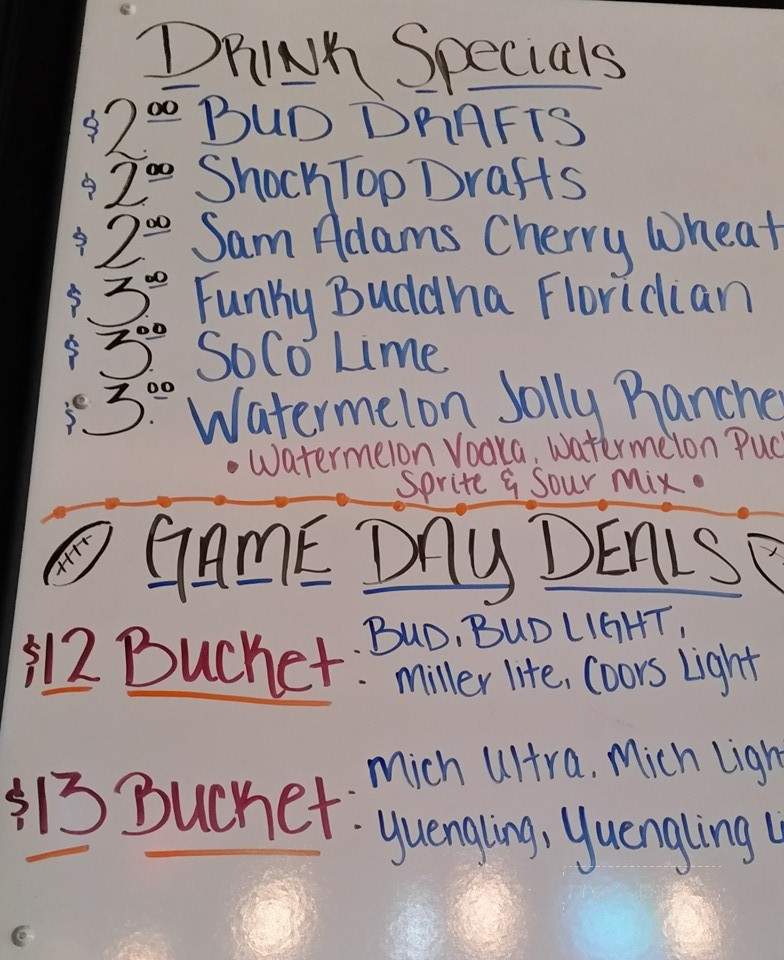 DRINK Specials
$2.00 BUD DRAFTS
$2.00 ShockTop Drafts
$2.00 Sam Adams Cherry Wheat
$3.00 Funky Buddha Floridian
$3.00 SoCo Lime
$3.00 Watermelon Jolly Ranche
• Watermelon Vodka, Watermelon Puc
Sprite & Sour Mix •
GAME DAY DEALS
$12 Bucket: BUD, BUD LIGHT,
Miller lite, Coors Light
$13 Bucket: Mich Ultra, Mich Ligh
Yuengling, Yuengling Li